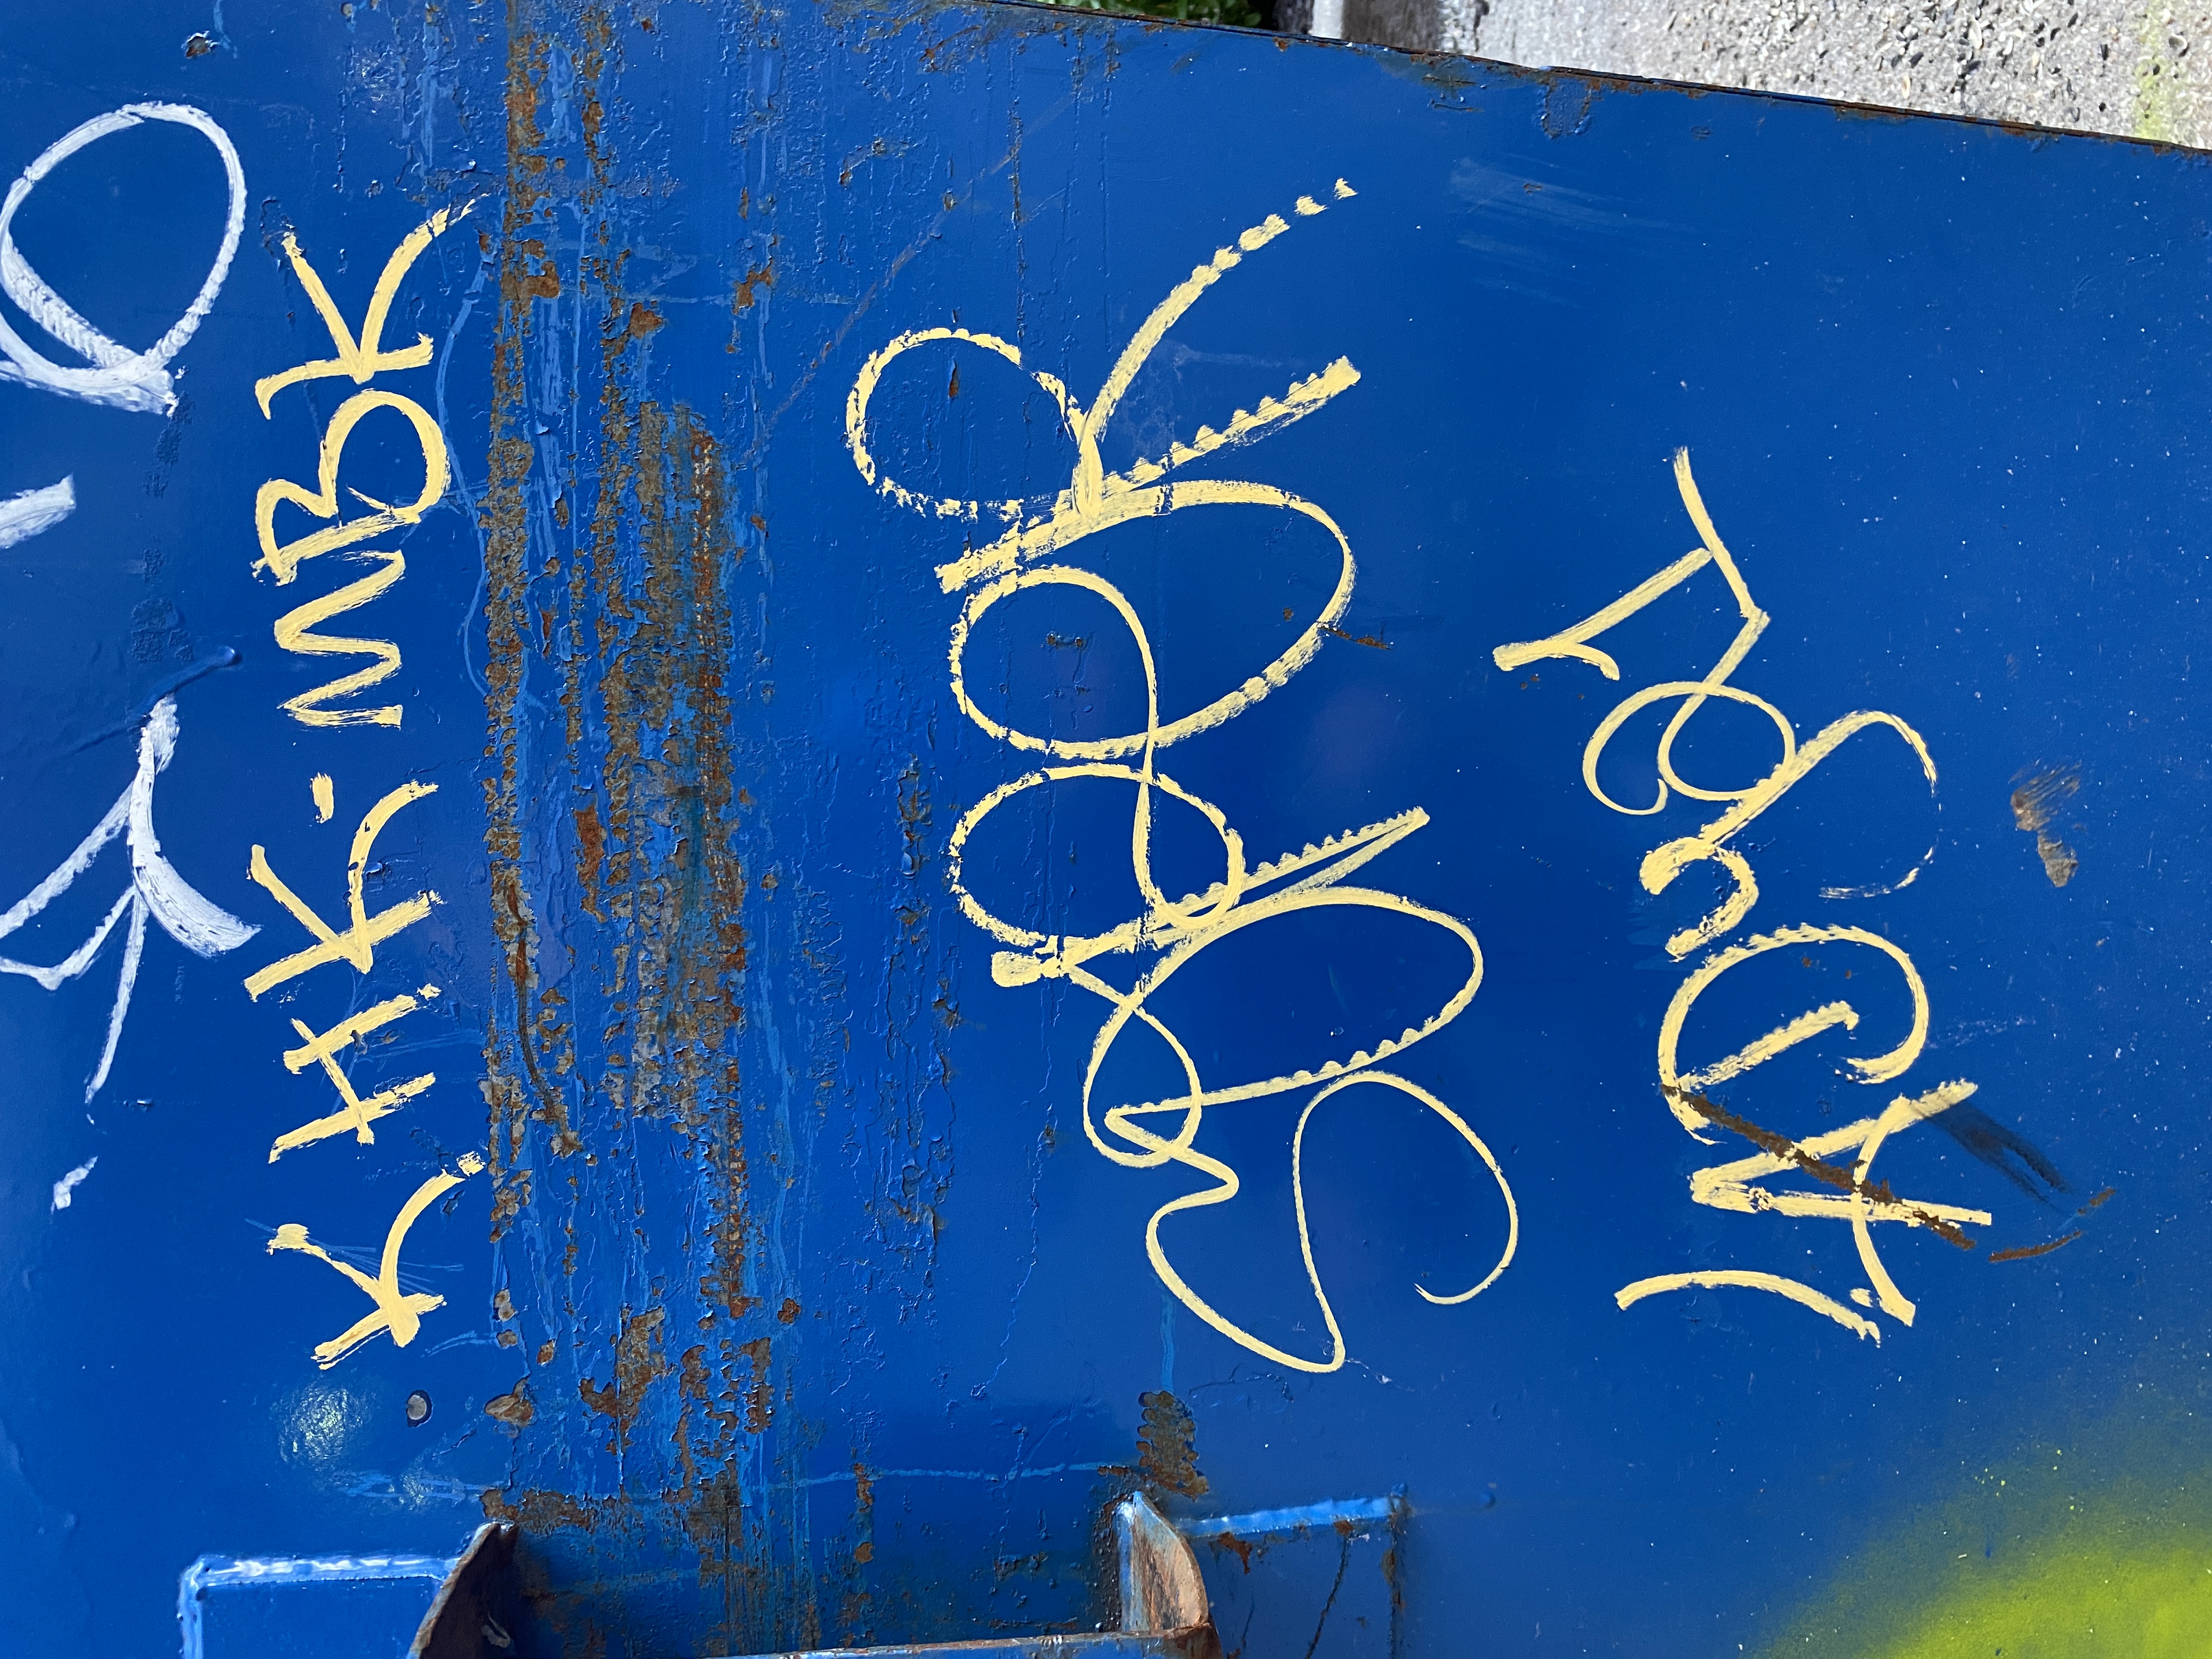 KHK-MBK
SUPER
LADY21